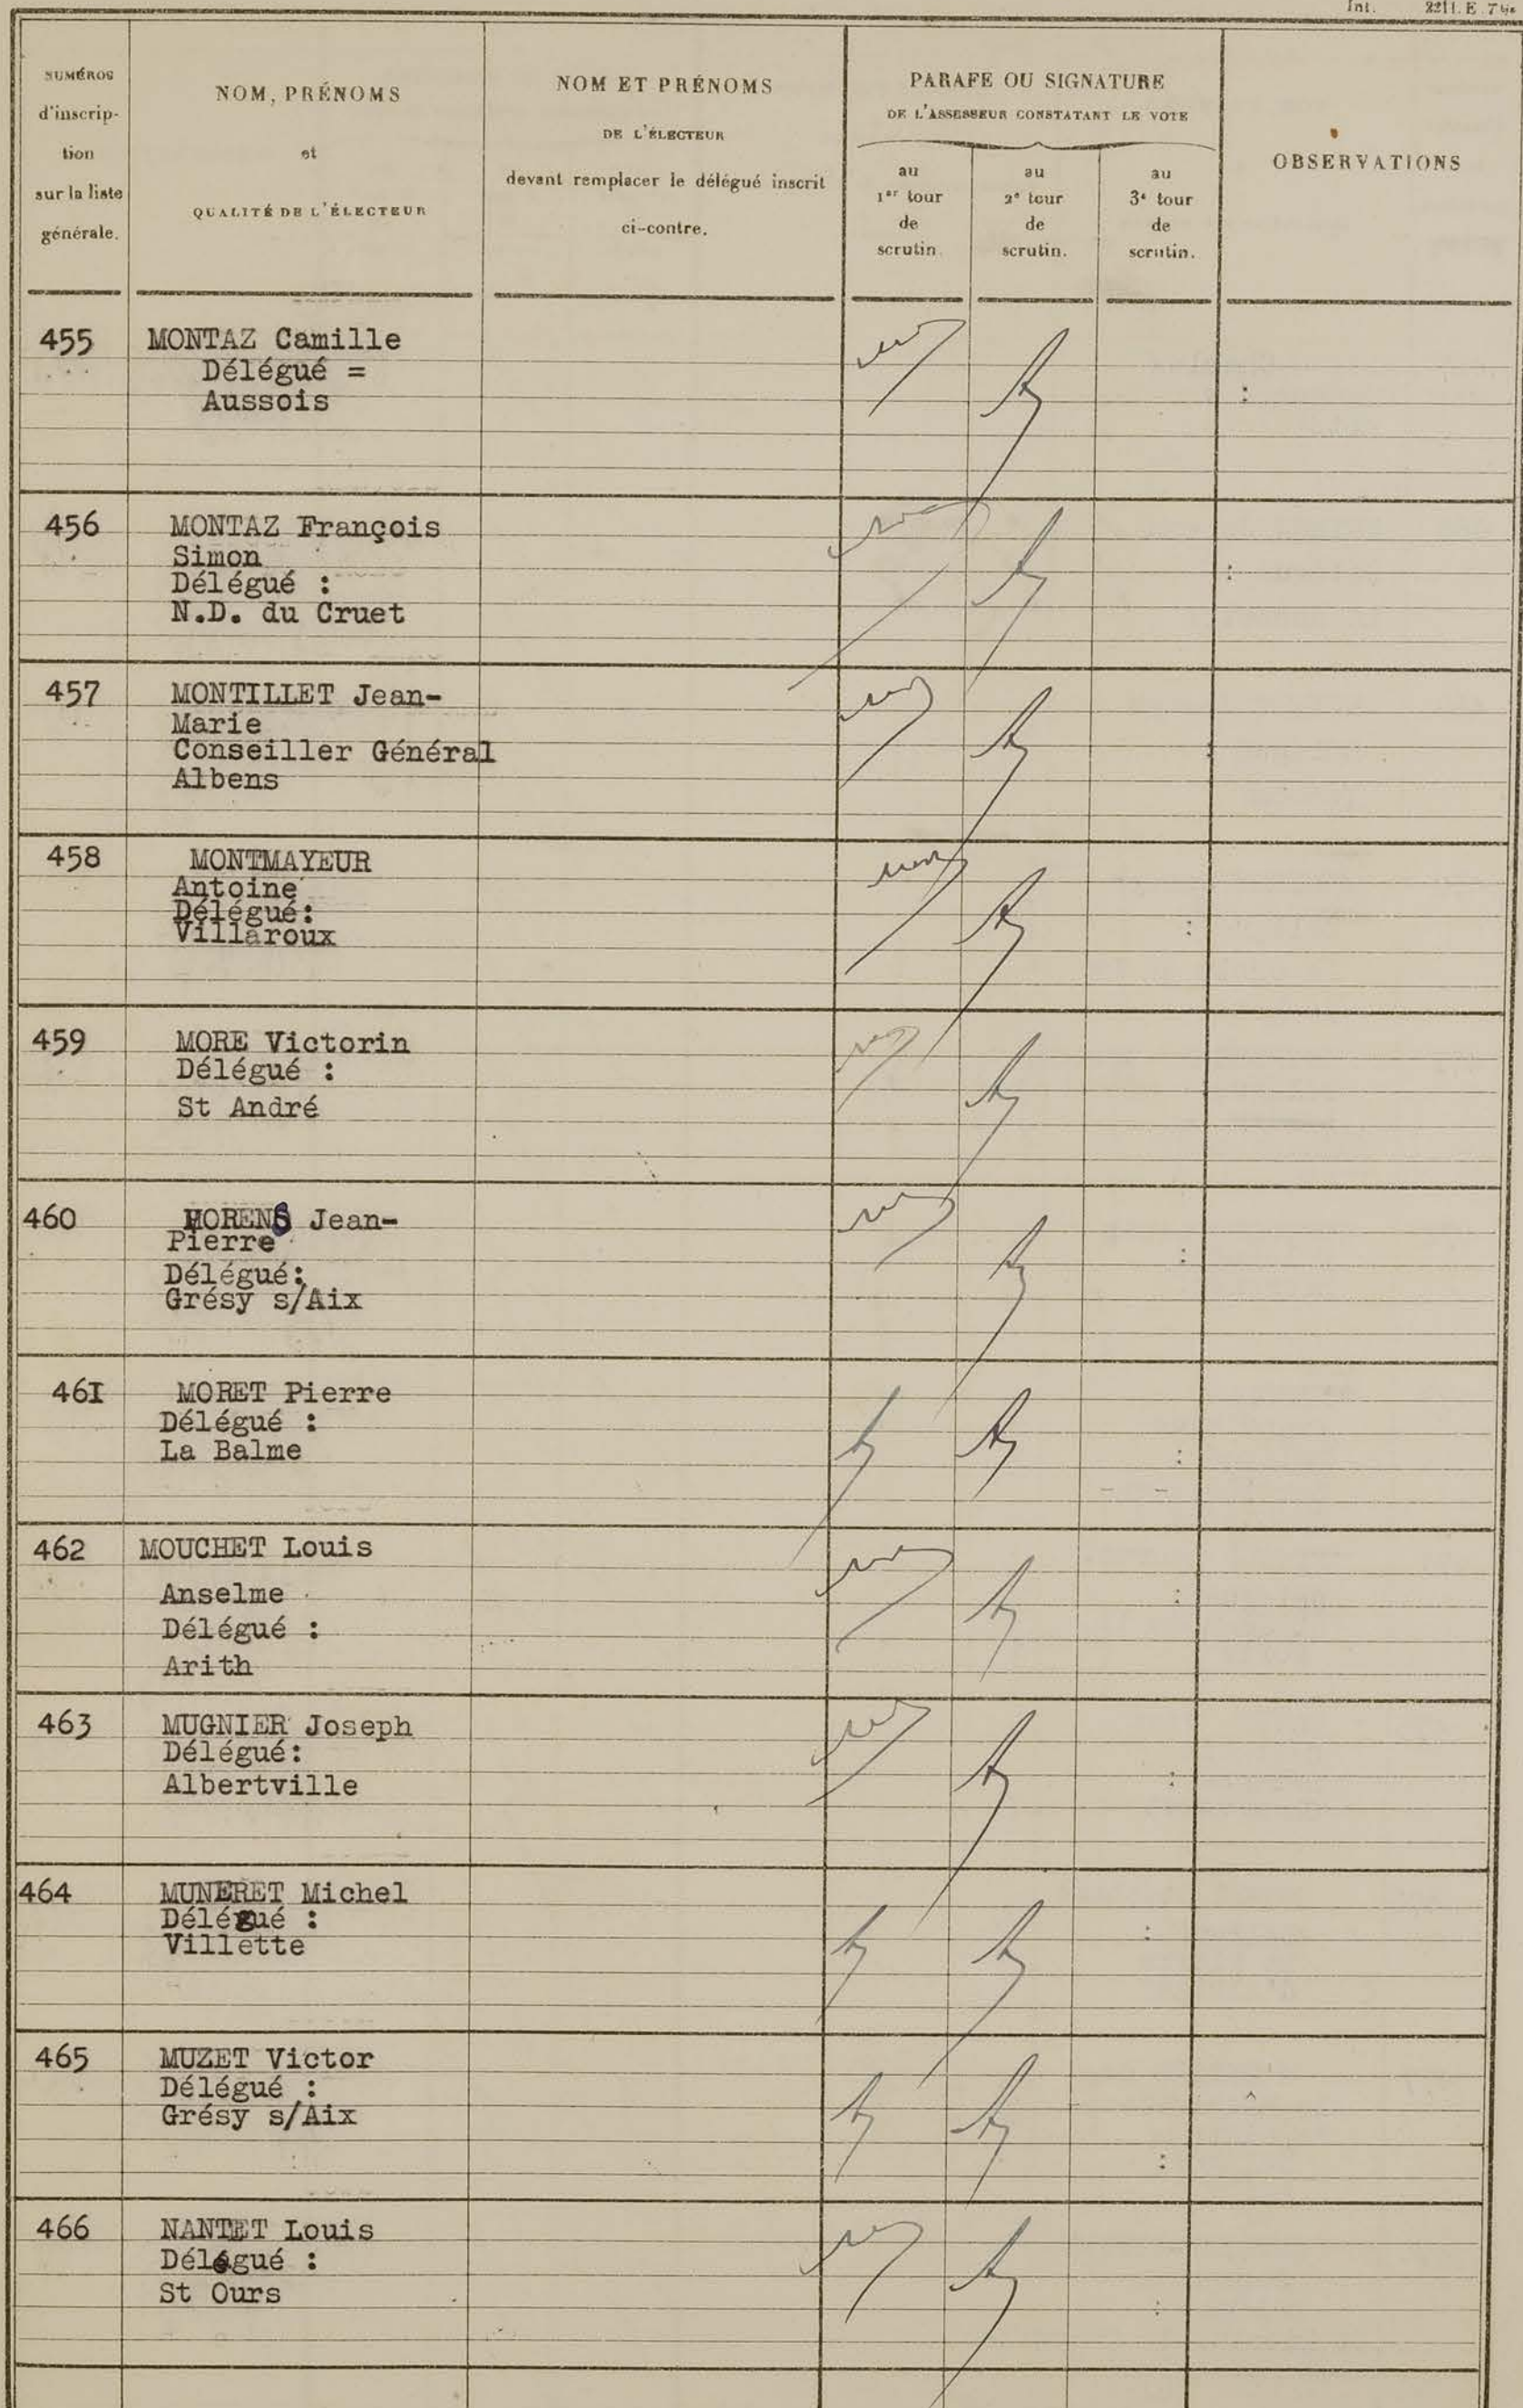 Int. 2211. E. 7 bis
NUMÉROS
d'inscrip-
tion
sur la liste
générale.
NOM, PRÉNOMS
et
QUALITÉ DE L'ÉLECTEUR
NOM ET PRÉNOMS
DE L'ÉLECTEUR
devant remplacer le délégué inscrit
ci-contre.
PARAFE OU SIGNATURE
DE L'ASSESSEUR CONSTATANT LE VOTE
au
1er tour
de
scrutin.
au
2e tour
de
scrutin.
au
3e tour
de
scrutin.
OBSERVATIONS
455 MONTAZ Camille
Délégué =
Aussois
456 MONTAZ François
Simon
Délégué :
N.D. du Cruet
457 MONTILLET Jean-
Marie
Conseiller Général
Albens
458 MONTMAYEUR
Antoine
Délégué:
Villaroux
459 MORE Victorin
Délégué :
St André
460 MORENS Jean-
Pierre
Délégué:
Grésy s/Aix
46I MORET Pierre
Délégué :
La Balme
462 MOUCHET Louis
Anselme
Délégué :
Arith
463 MUGNIER Joseph
Délégué:
Albertville
464 MUNERET Michel
Délégué :
Villette
465 MUZET Victor
Délégué :
Grésy s/Aix
466 NANTET Louis
Délégué :
St Ours